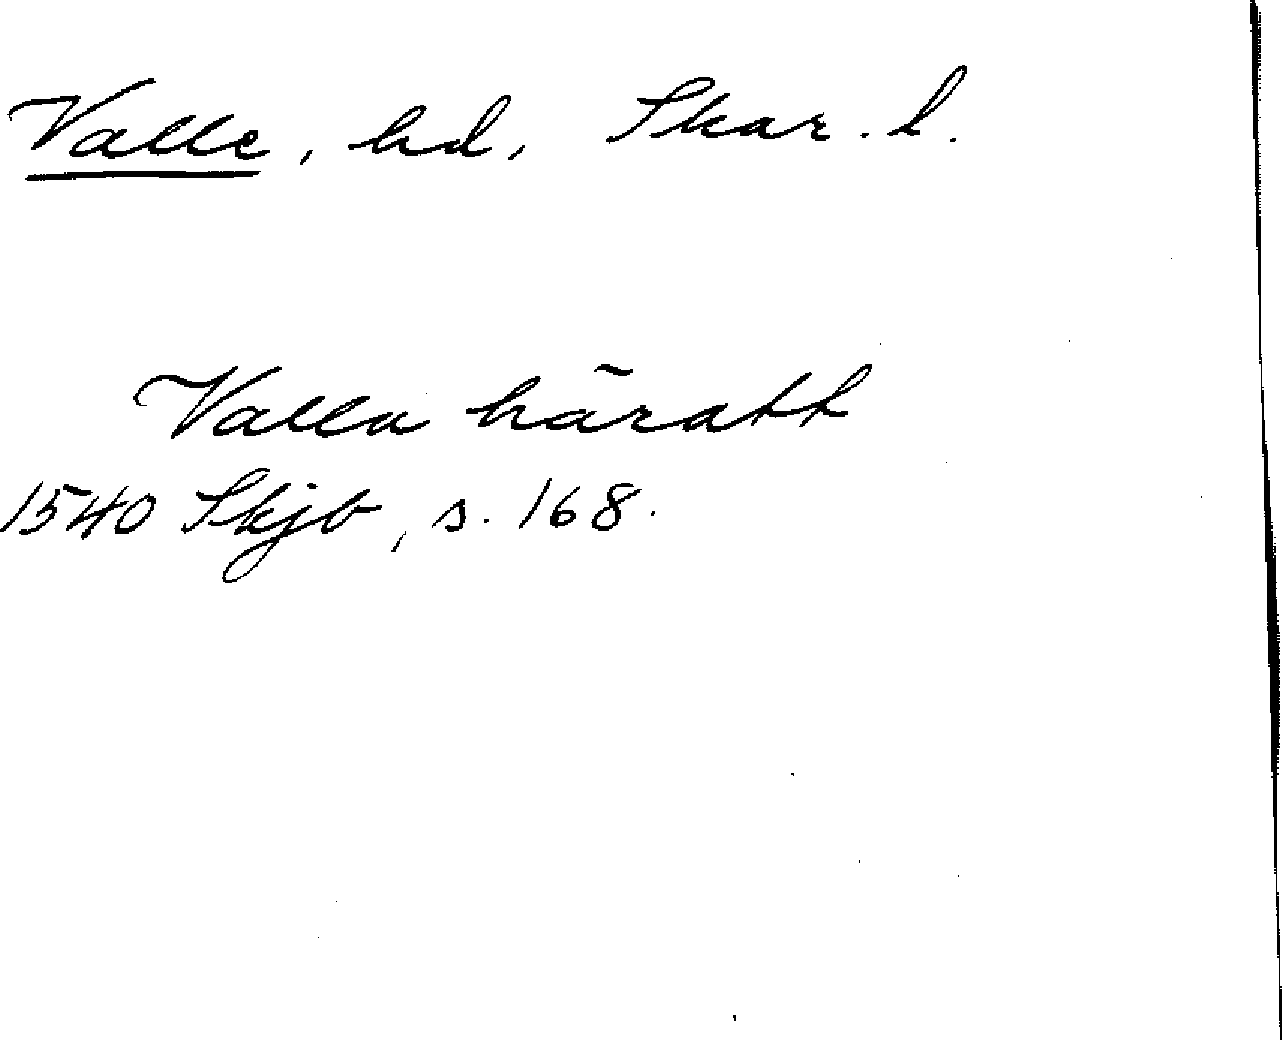 Valle, hd, Skar. l.
Valla häratt
1540 Skjb, s. 168.